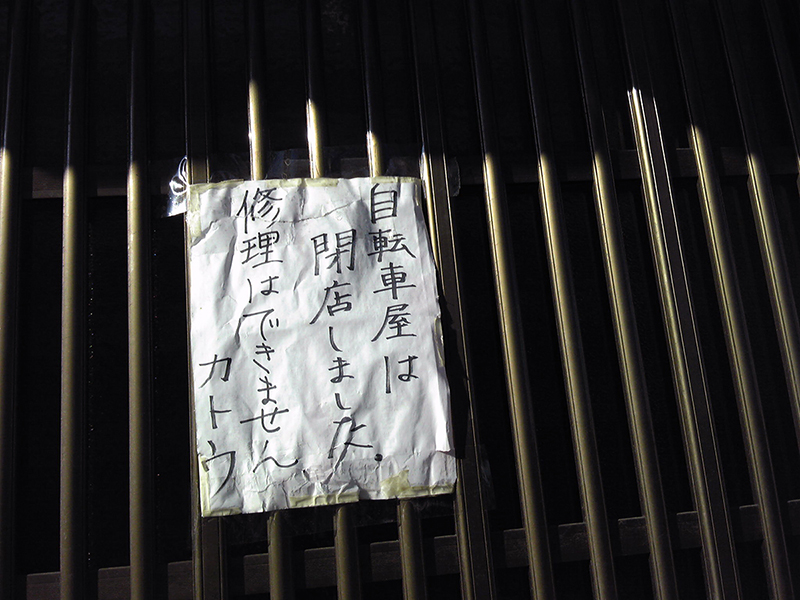 自転車屋は
閉店しました.
修理はできません
カトウ